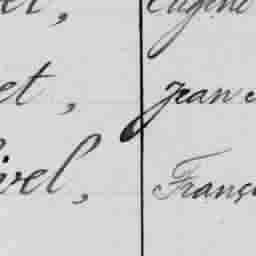 Eugène
et, Jean
ivel, Franç